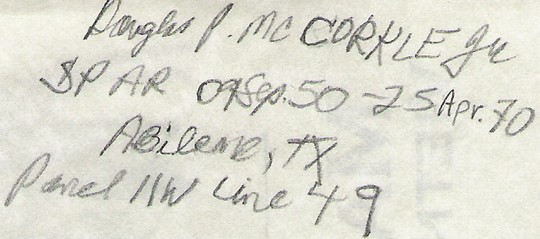 Douglas P. MCCORKLE Jr
SP AR 09 Sep. 50 - 25 Apr. 70
Abilene, TX
Panel 11W Line 49